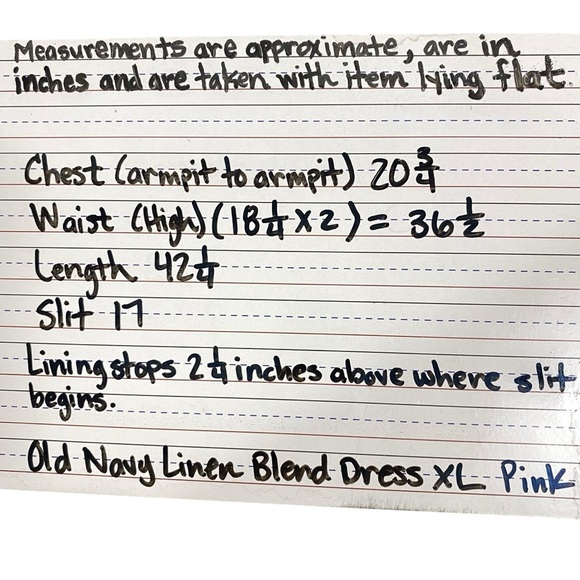 Measurements are approximate, are in
inches and are taken with item lying flat.
Chest (armpit to armpit) 20 3/4
Waist (High) (18 1/4 x 2) = 36 1/2
Length 42 1/4
Slit 17
Lining stops 2 1/4 inches above where slit
begins.
Old Navy Linen Blend Dress XL Pink